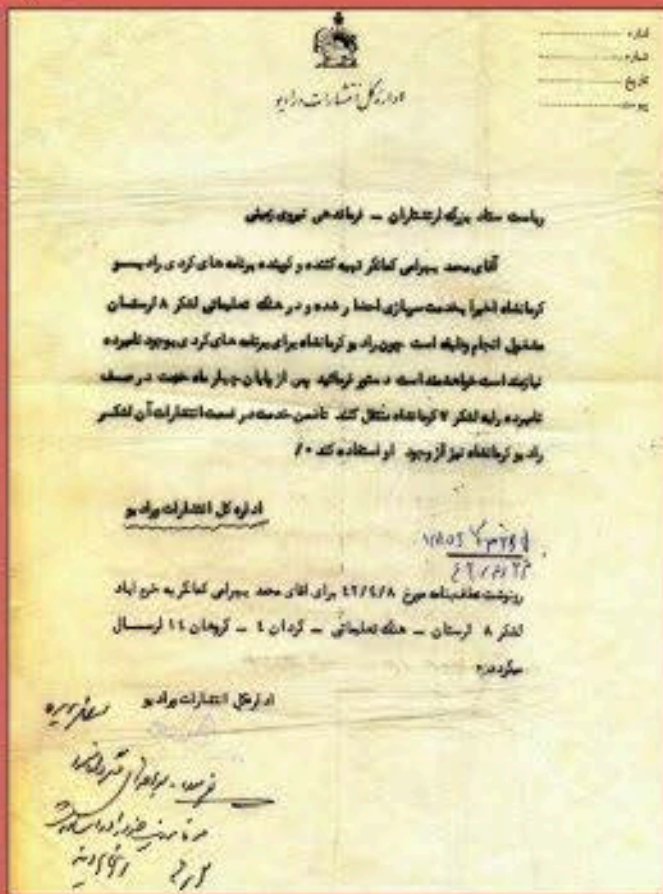 شماره
تاریخ
پیوست
اداره کل انتشارات و رادیو
ریاست ستاد بزرگ ارتشتاران – فرماندهی نیروی زمینی
آقای محمد بهرامی کمانگر تهیه کننده و گوینده برنامه های کردی رادیو
کرمانشاه اخیرا بخدمت سربازی احضار شده و در هنگ تعلیماتی لشکر ۸ لرستان
مشغول انجام وظیفه است چون رادیو کرمانشاه برای برنامه های کردی بوجود نامبرده
نیازمند است خواهشمند است دستور فرمائید پس از پایان چهار ماه خدمت در صف
نامبرده را به لشکر ۷ کرمانشاه منتقل کنند تا ضمن خدمت در قسمت انتشارات آن لشکر
رادیو کرمانشاه نیز از وجود او استفاده کند ۰/
اداره کل انتشارات و رادیو
رونوشت عطف بنامه مورخ ۴۲/۴/۸ برای آقای محمد بهرامی کمانگر به خرم آباد
لشکر ۸ لرستان – هنگ تعلیماتی – گردان ۴ – گروهان ۱۴ ارسال
میگردد
اداره کل انتشارات و رادیو